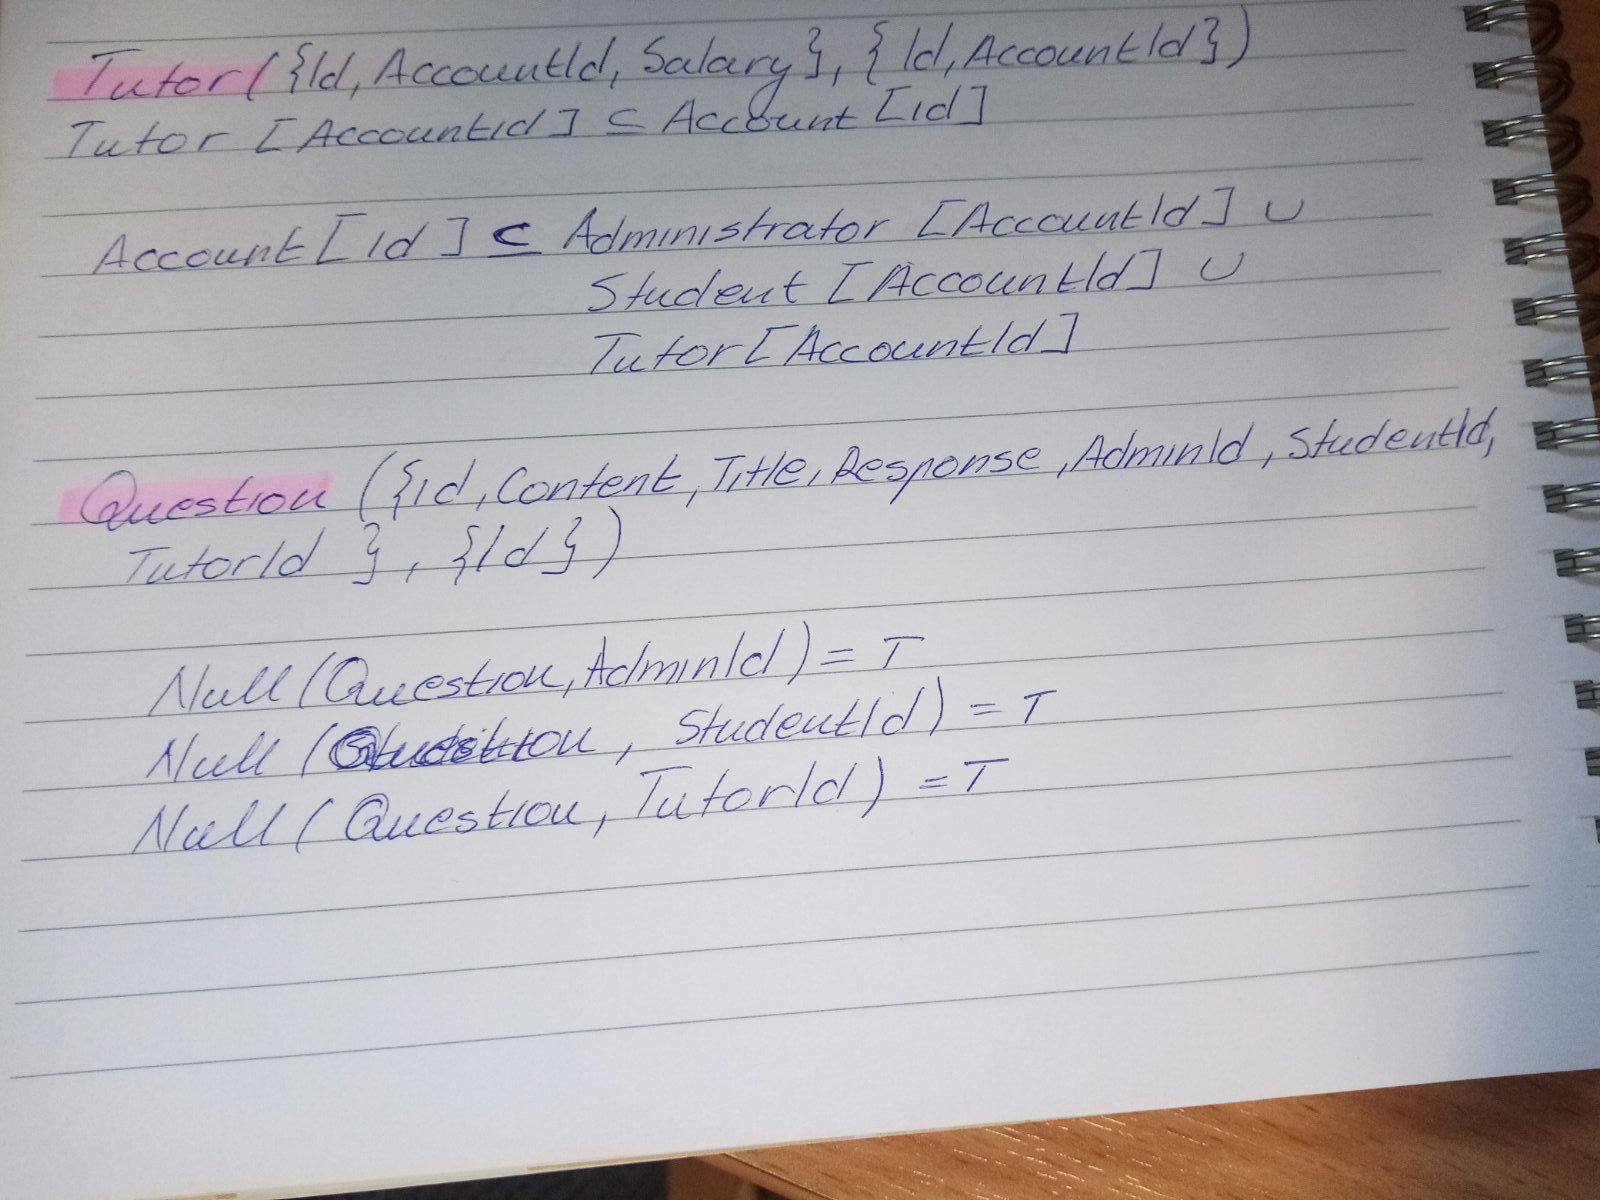 Tutor({Id, AccountId, Salary}, {Id, AccountId})
Tutor [AccountId] ⊆ Account [id]
Account [Id] ⊆ Administrator [AccountId] ∪
Student [AccountId] ∪
Tutor [AccountId]
Question ({id, Content, Title, Response, AdminId, StudentId,
TutorId }, {Id})
Null (Question, AdminId) = T
Null (Question, StudentId) = T
Null (Question, TutorId) = T